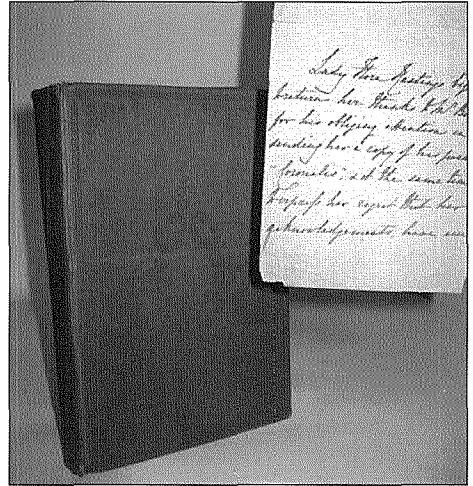 Lady Flora Hastings
to return her thanks to Mr
for his obliging attention in
sending her a copy of his
at the same
to express her regret that her
acknowledgements have